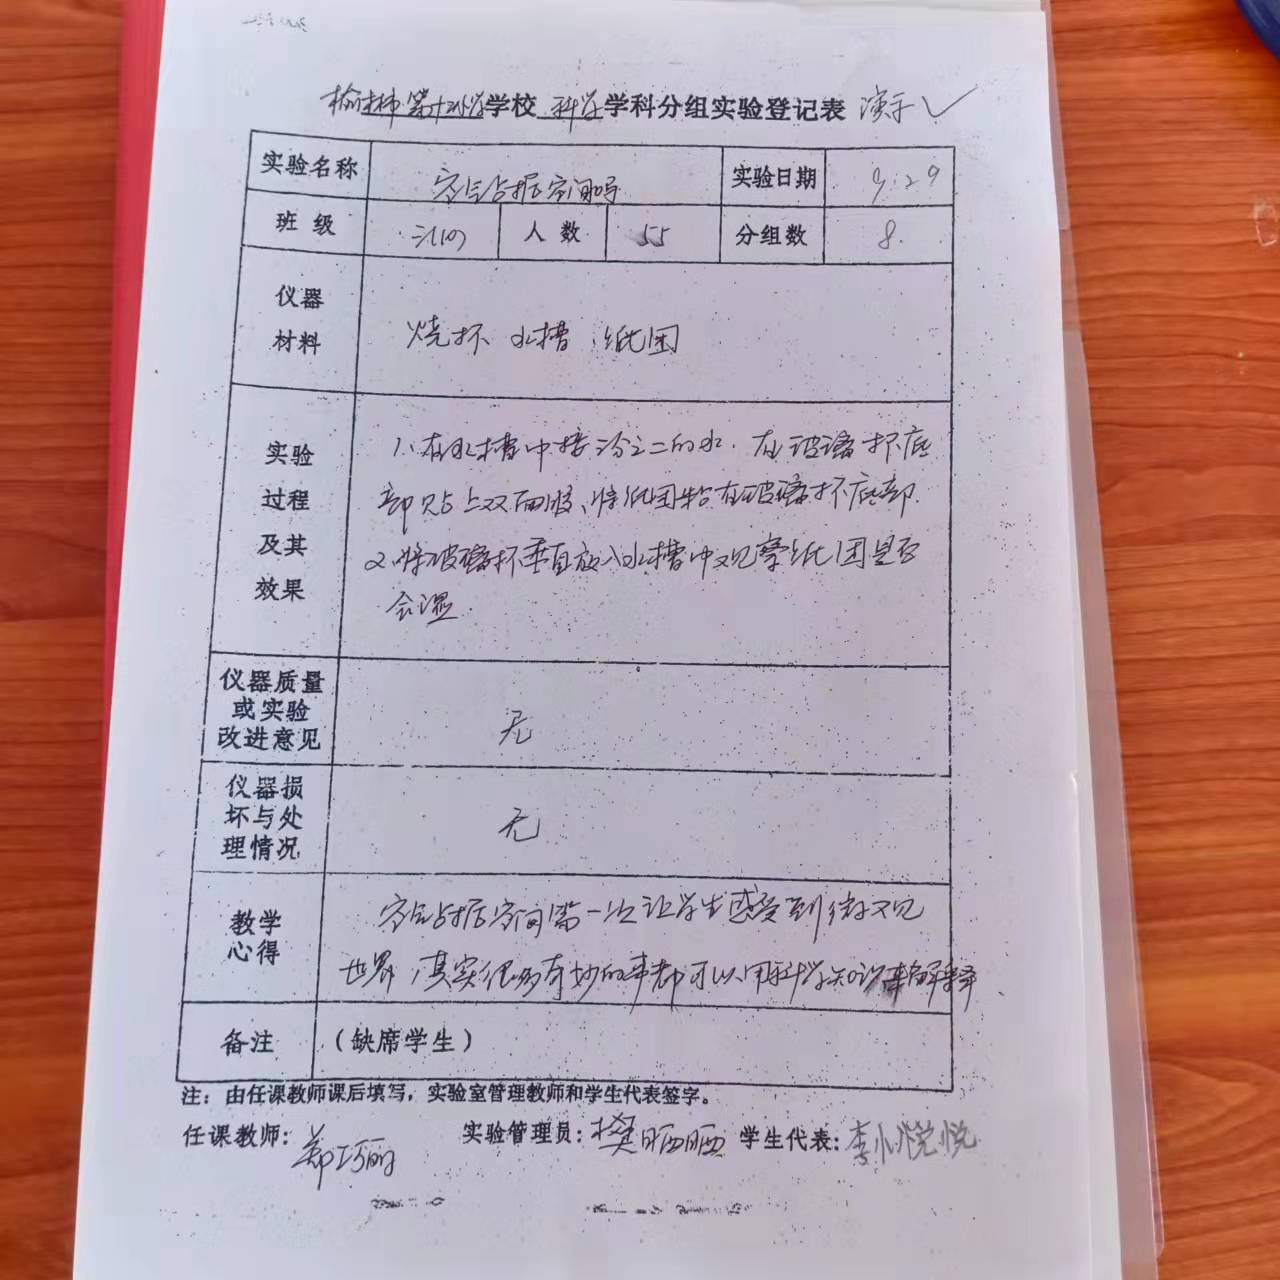 榆林市第十二小学学校 科学学科分组实验登记表 演示✓
实验名称 空气占据空间吗 实验日期 9.29
班级 三(10) 人数 55 分组数 8
仪器
材料
烧杯、水槽、纸团
实验
过程
及其
效果
1、在水槽中接三分之二的水.在玻璃杯底
部贴上双面胶、将纸团粘在玻璃杯底部.
2.将玻璃杯垂直放入水槽中观察纸团是否
会湿.
仪器质量
或实验
改进意见
无
仪器损
坏与处
理情况
无
教学
心得
空气占据空间第一次让学生感受到微观
世界,其实很多奇妙的事都可以用科学知识来解释
备注 (缺席学生)
注:由任课教师课后填写,实验室管理教师和学生代表签字。
任课教师:郑巧丽 实验管理员:樊晒晒 学生代表:李悦悦